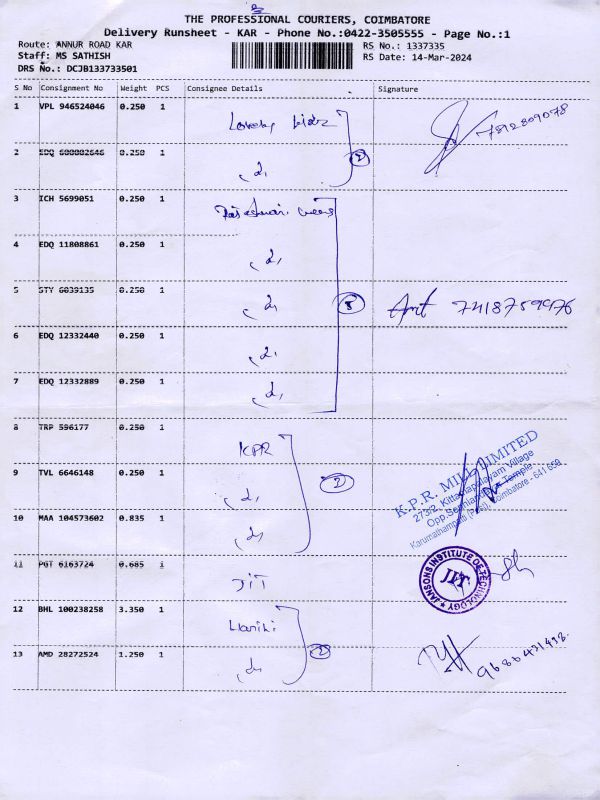 THE PROFESSIONAL COURIERS, COIMBATORE
Delivery Runsheet - KAR - Phone No.:0422-3505555 - Page No.:1
Route: ANNUR ROAD KAR
RS No.: 1337335
Staff: MS SATHISH
RS Date: 14-Mar-2024
DRS No.: DCJB133733501
S No Consignment No Weight PCS Consignee Details Signature
1 VPL 946524046 0.250 1 Lovely
7892809078
2 EDQ 0.250 1
2
3 ICH 5699051 0.250 1
4 EDQ 11808861 0.250 1
5 STY 6039135 0.250 1
5
7418759976
6 EDQ 12332440 0.250 1
7 EDQ 12332889 0.250 1
8 TRP 596177 0.250 1 KPR
K.P.R. MILL LIMITED
273/2, Kittampalayam Village
9 TVL 6646148 0.250 1
Karumathampatti (Post), Coimbatore - 641 659
10 MAA 104573602 0.835 1
11 PGT 6163724 0.685 1 JIT
JANSONS INSTITUTE OF TECHNOLOGY
JIT
12 BHL 100238258 3.350 1
13 AMD 28272524 1.250 1
2